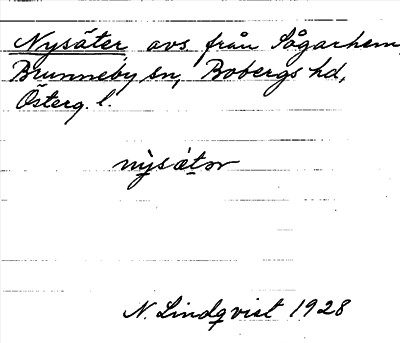 Nysäter avs. från Sågarhem,
Brunneby sn, Bobergs hd,
Österg. l.
nỳsätər
N. Lindqvist 1928